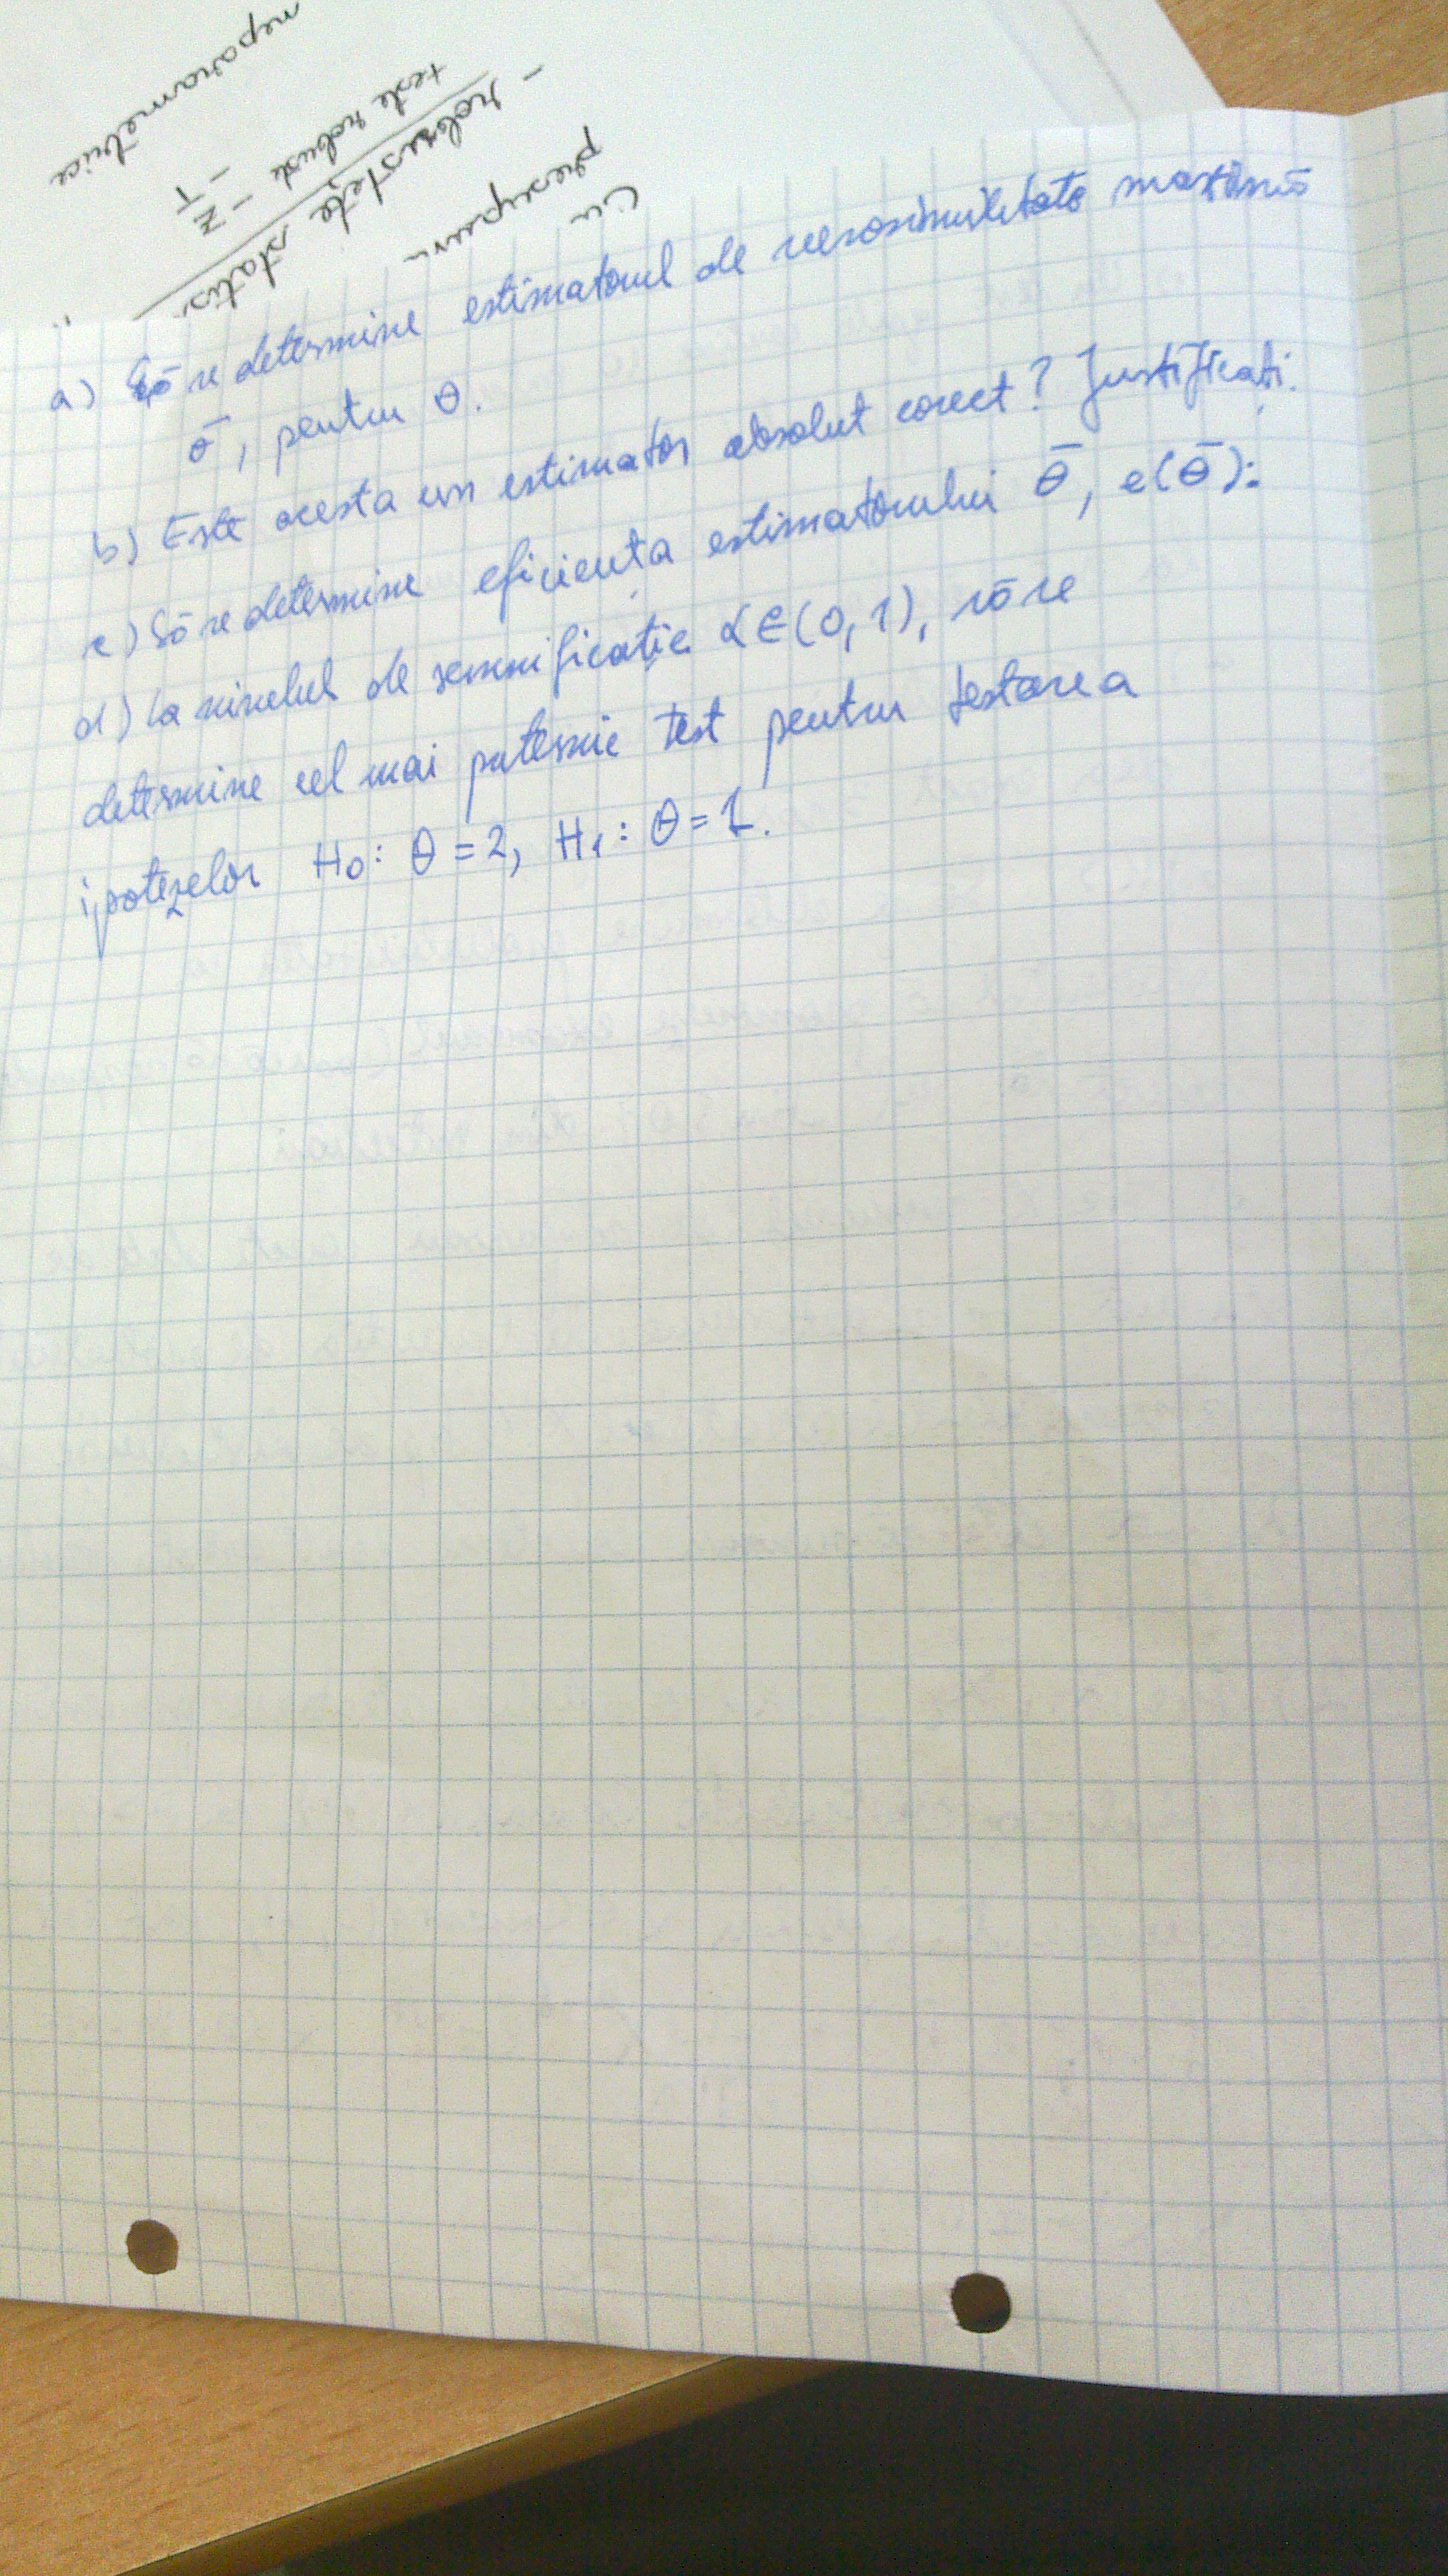 neparametrice
teste robuste
- Z
- T
- robustețe statis
presupun
Cu
a) Să se determine estimatorul de verosimilitate maximă
σ̄, pentru θ.
b) Este acesta un estimator absolut corect? Justificați.
c) Să se determine eficiența estimatorului θ̄, e(θ̄).
d) La nivelul de semnificație α∈(0,1), să se
determine cel mai puternic test pentru testarea
ipotezelor H₀: θ=2, H₁: θ=1.